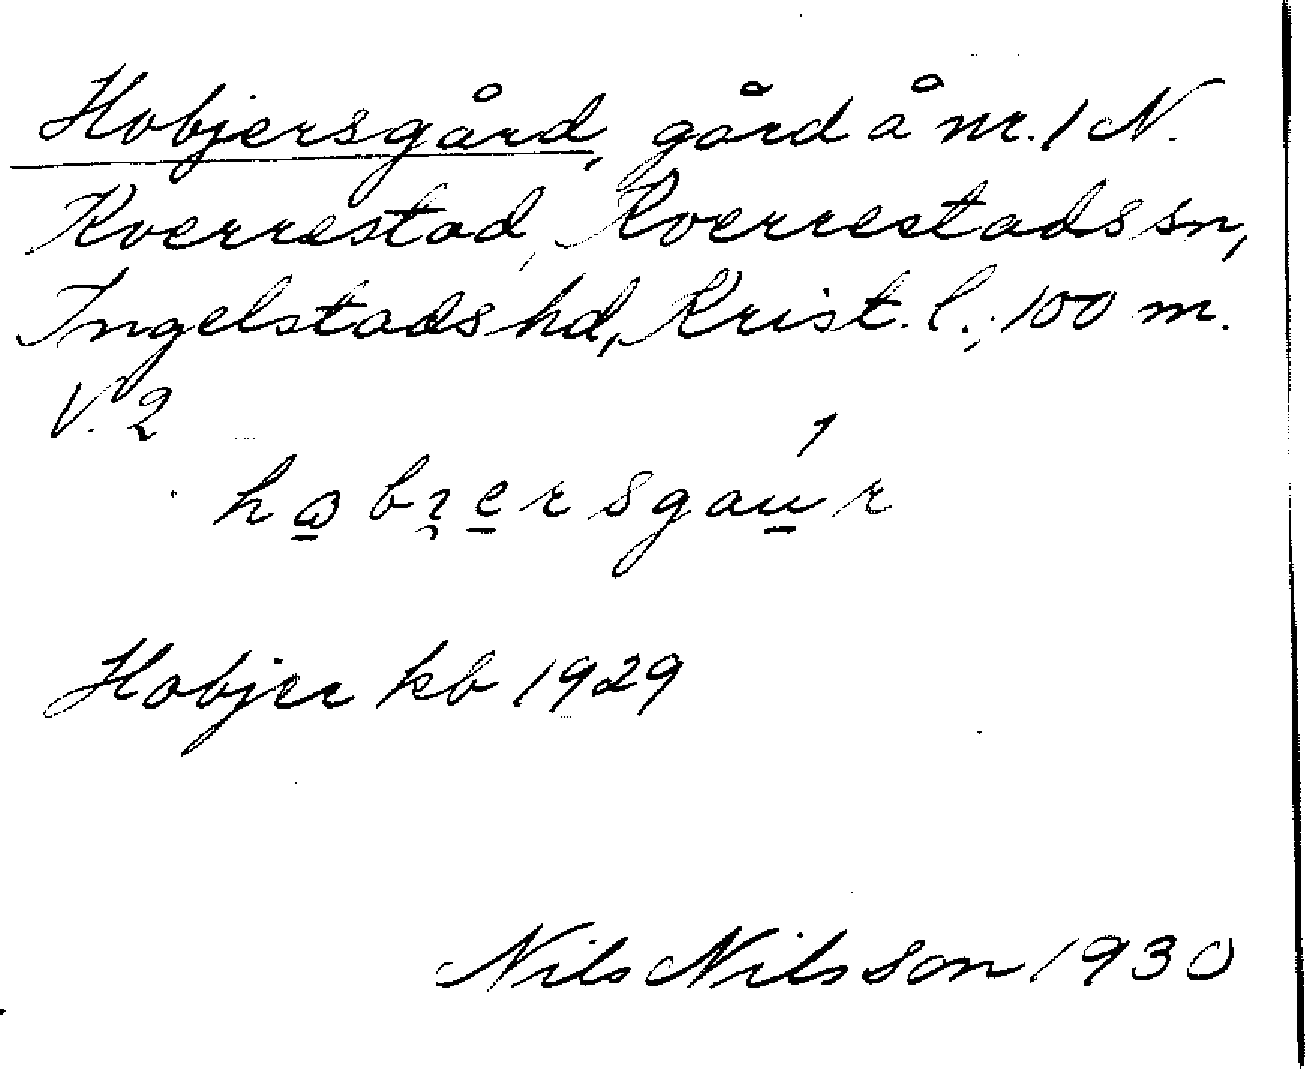 Hobjersgård, gård å nr. 1 N.
Kverrestad, Kverrestads sn,
Ingelstads hd, Krist. l.; 100 m.
V. 2
Hobjer kb 1929
Nils Nilsson 1930